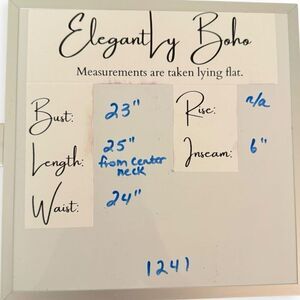 Elegantly Boho
Measurements are taken lying flat.
Bust: 23" Rise: n/a
Length: 25" from center neck Inseam: 6"
Waist: 24"
1241